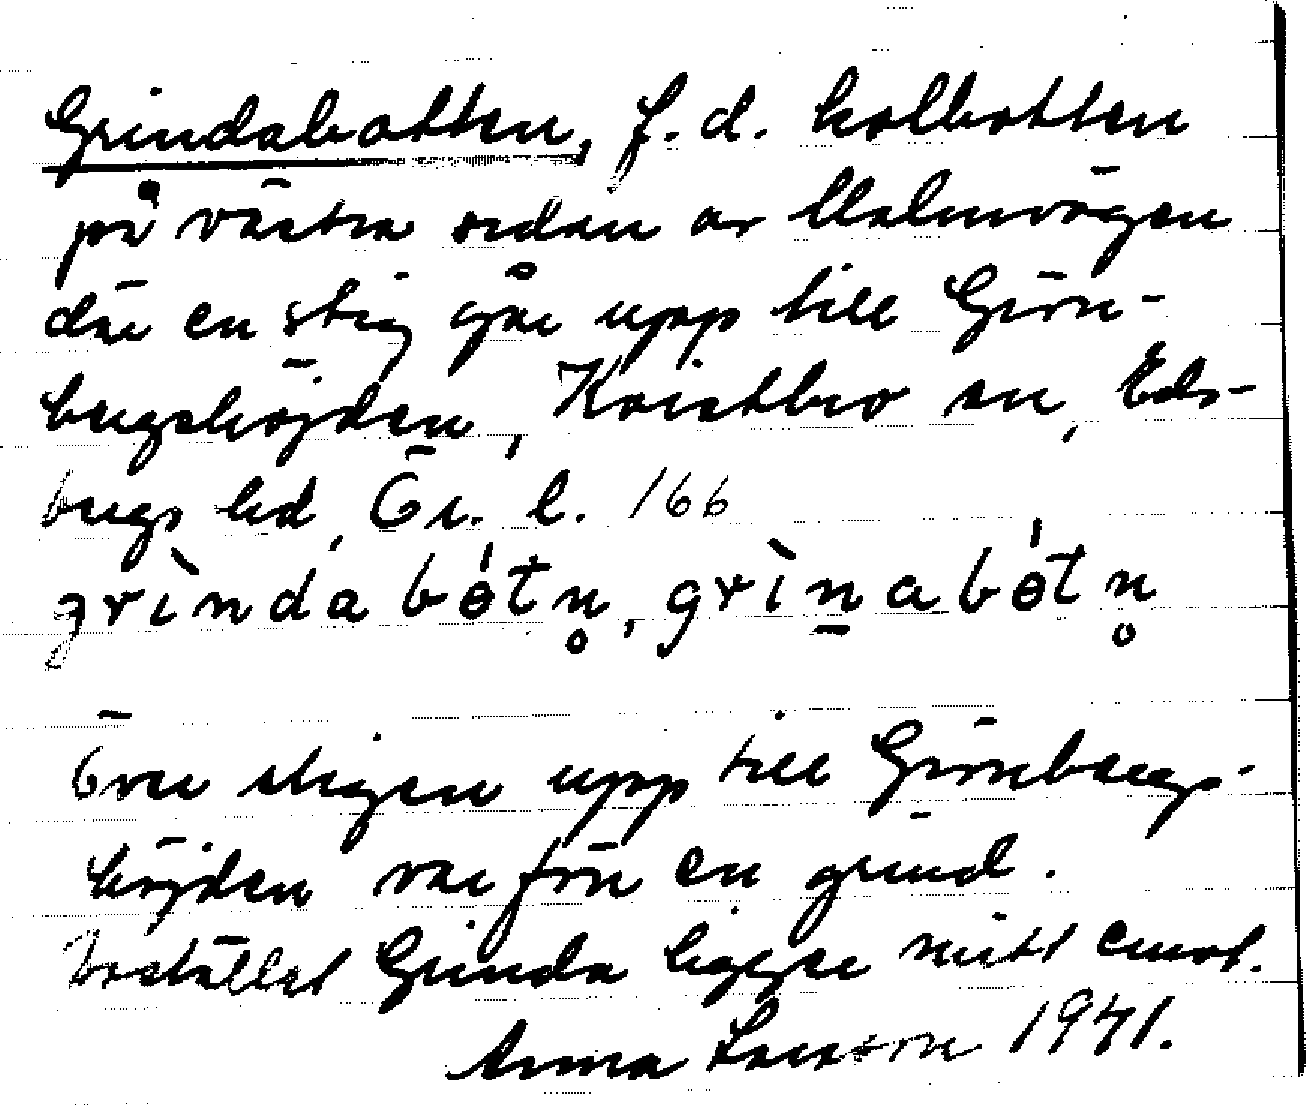 Grindabotten, f.d. kolbotten
på västra sidan av Malmvägen
där en stig går upp till Grön-
bergshöjden, Kristbro sn, Eds-
bergs hd, Ör. l. 166
grìndabótn̥, grìnabótn̥
Över stigen upp till Grönbergs-
höjden var förr en grind.
Torstället Grinda ligger mitt emot.
Anna Larsson 1941.